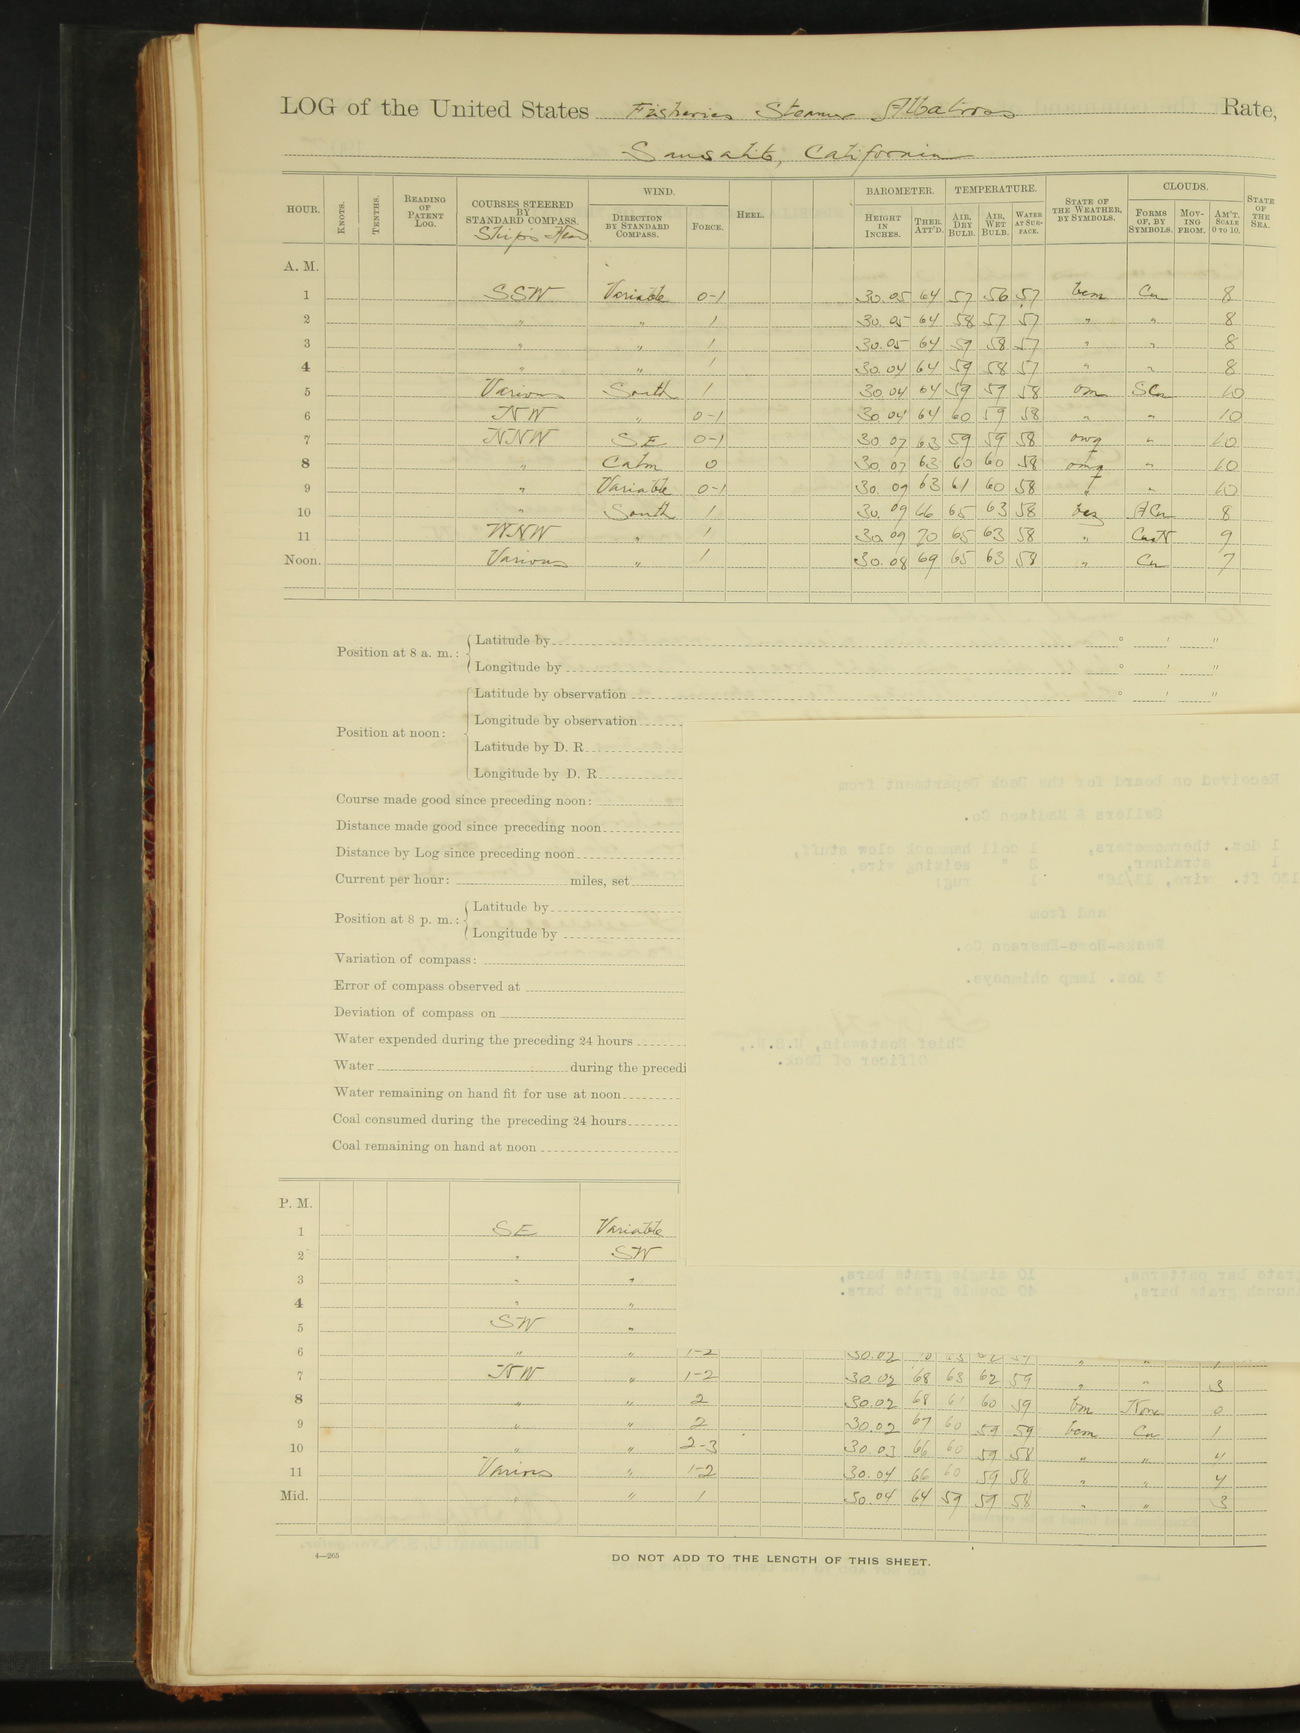 LOG of the United States Fisheries Steamer Albatross Rate,
Sausalito, California
HOUR. KNOTS. TENTHS. READING OF PATENT LOG. COURSES STEERED BY STANDARD COMPASS. Ship's Head WIND. DIRECTION BY STANDARD COMPASS. FORCE. HEEL. BAROMETER. HEIGHT IN INCHES. THER. ATT'D. TEMPERATURE. AIR, DRY BULB. AIR, WET BULB. WATER AT SURFACE. STATE OF THE WEATHER, BY SYMBOLS. CLOUDS. FORMS OF, BY SYMBOLS. MOVING FROM. AM'T. SCALE 0 TO 10. STATE OF THE SEA.
A. M.
1 SSW Variable 0-1 30.05 64 57 56 57 bcm Cu 8
2 " " 1 30.05 64 58 57 57 " " 8
3 " " 1 30.05 64 59 58 57 " " 8
4 " " 1 30.04 64 59 58 57 " " 8
5 Various South 1 30.04 64 59 59 58 om SCu 10
6 NW " 0-1 30.04 64 60 59 58 " " 10
7 NNW SE 0-1 30.07 63 59 59 58 " 10
8 " Calm 0 30.07 63 60 60 58 omq " 10
9 " Variable 0-1 30.09 63 61 60 58 " 10
10 " South 1 30.09 66 65 63 58 bcz ACu 8
11 WNW " 1 30.09 70 65 63 58 " CuN 9
Noon. Various " 1 30.08 69 65 63 58 " Cu 7
Position at 8 a. m.: Latitude by ° ' "
Longitude by ° ' "
Position at noon: Latitude by observation ° ' "
Longitude by observation
Latitude by D. R.
Longitude by D. R.
Course made good since preceding noon:
Distance made good since preceding noon
Distance by Log since preceding noon
Current per hour: miles, set
Position at 8 p. m.: Latitude by
Longitude by
Variation of compass:
Error of compass observed at
Deviation of compass on
Water expended during the preceding 24 hours
Water during the precedi
Water remaining on hand fit for use at noon
Coal consumed during the preceding 24 hours
Coal remaining on hand at noon
P. M.
1 SE Variable
2 " SW
3 " "
4 " "
5 SW "
6 " " 1-2 30.02
7 NW " 1-2 30.02 68 63 62 59 " " 3
8 " " 2 30.02 68 61 60 59 bm None 0
9 " " 2 30.02 67 60 59 59 bcm Cu 1
10 " " 2-3 30.03 66 60 59 58 " " 4
11 Various " 1-2 30.04 66 60 59 58 " " 4
Mid. " " 1 30.04 64 59 59 58 " " 3
4—265
DO NOT ADD TO THE LENGTH OF THIS SHEET.